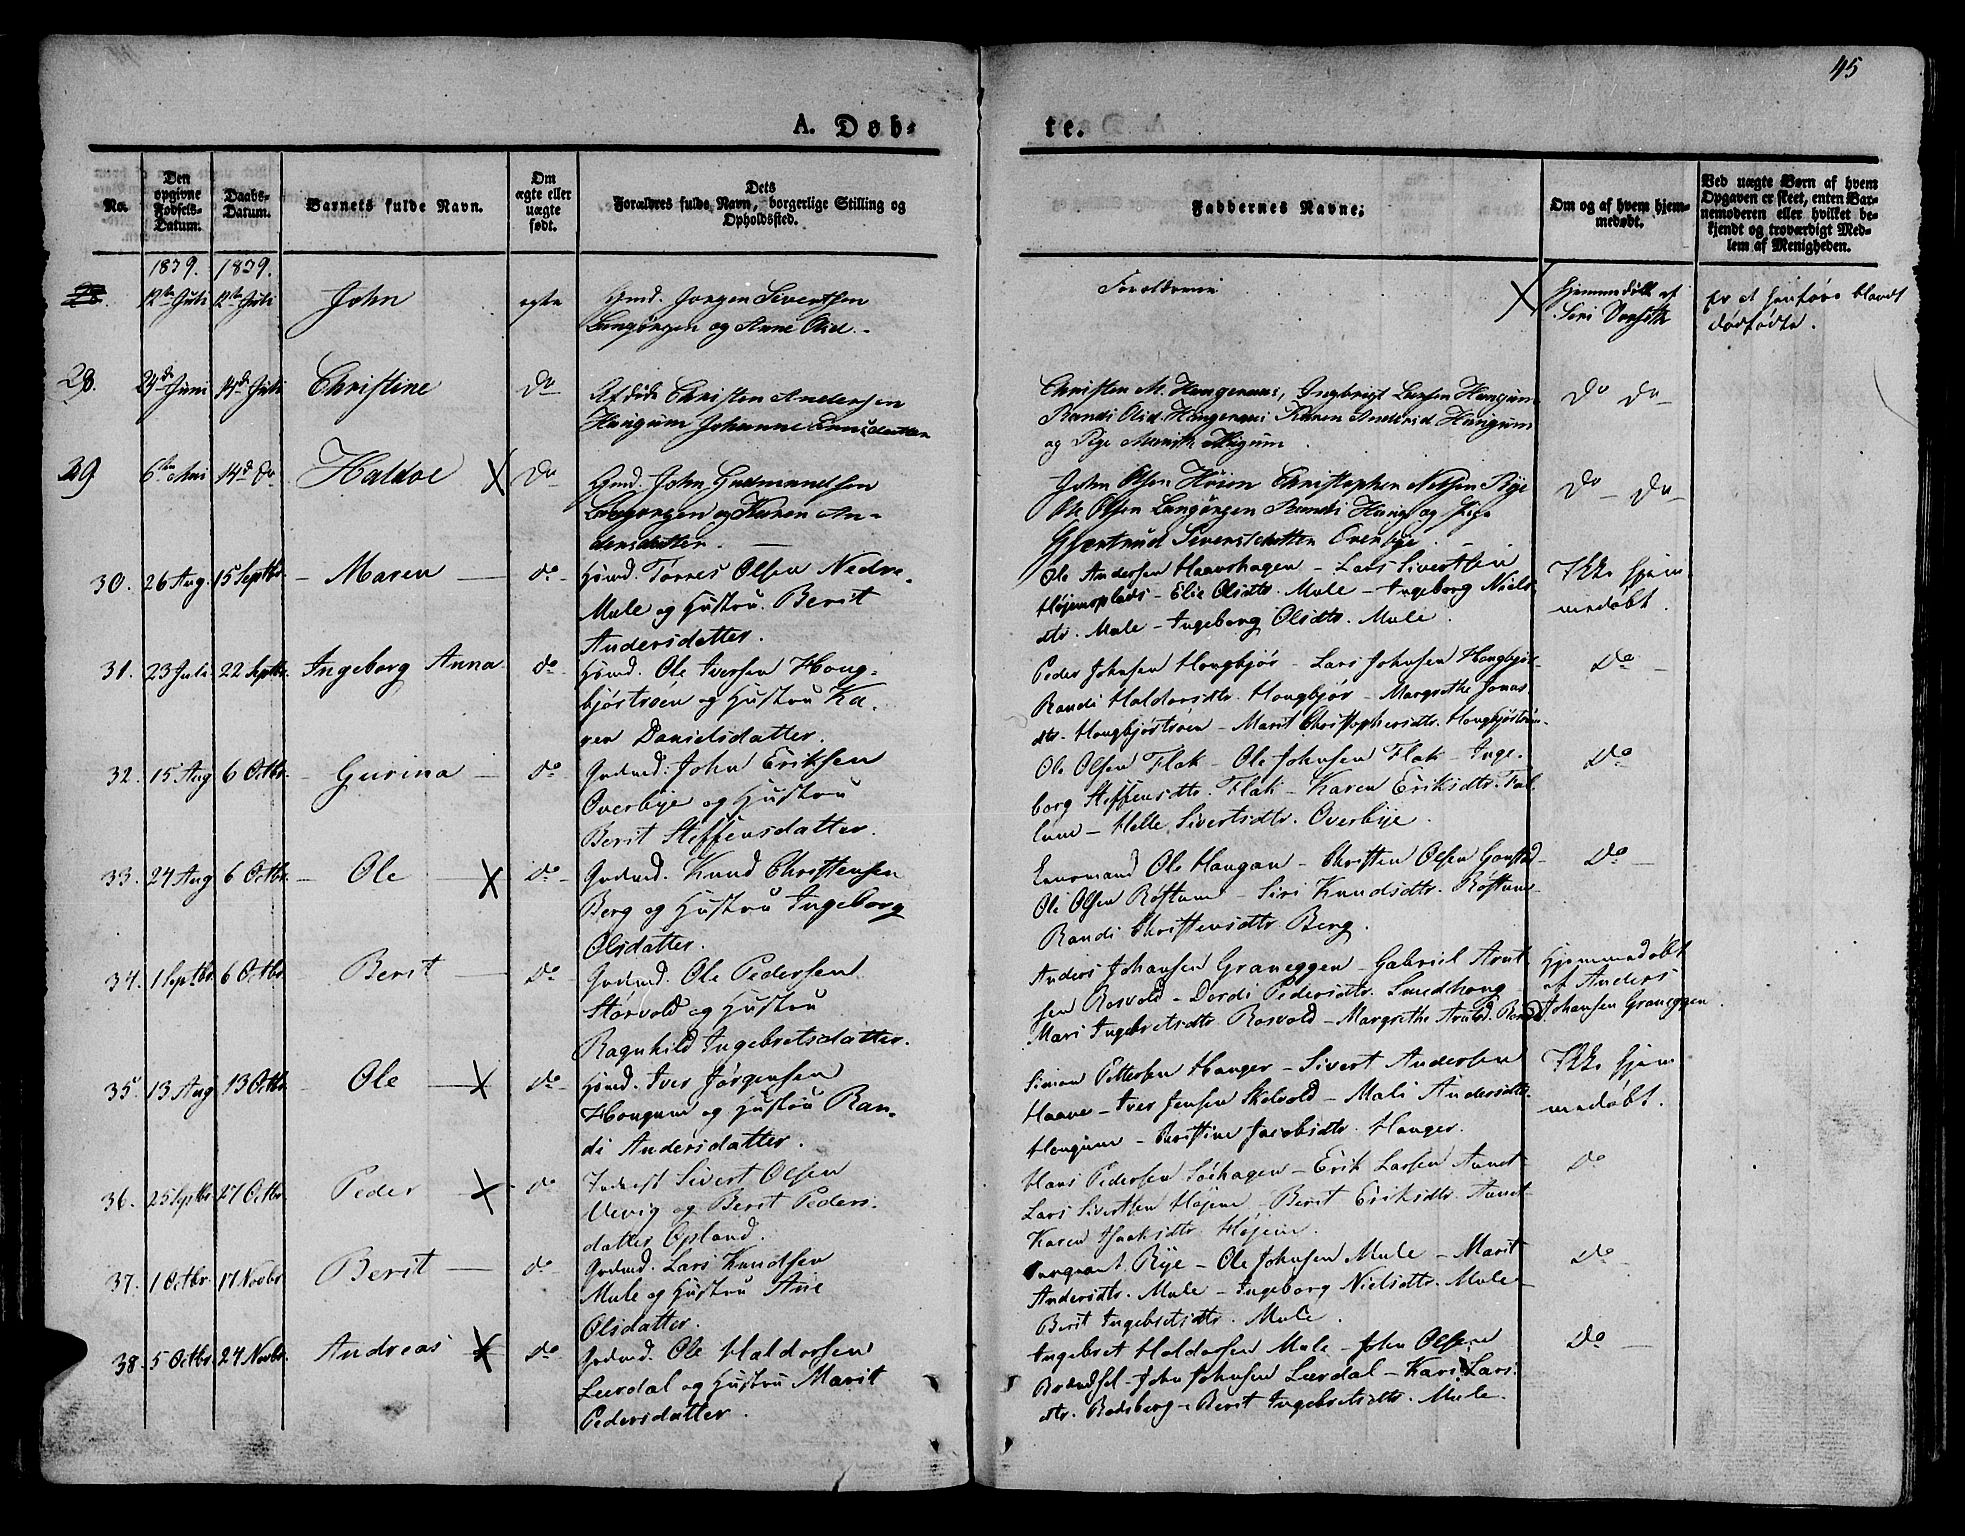 45
A. Døb-
te.
No.
Den opgivne Fødsels-Datum.
Daabs-Datum.
Barnets fulde Navn.
Om ægte eller uægte født.
Dets Forældres fulde Navn, borgerlige Stilling og Opholdssted.
Faddernes Navne.
Om og af hvem hjem-medøbt.
Ved uægte Børn af hvem Opgaven er skeet, enten Bar-nemoderen eller hvilket be-kjendt og troværdigt Med-lem af Menigheden.
1839. 1839.
12te Juli 12te Juli John ægte Hmd. Jørgen Sivertsen
Langørgen og Anne Olsd. -
Forældrene
Hjemmedøbt af
Siri
er at henføre blandt
dødfødte.
28. 24de Juni 14de Juli Christine Do Afdøde Christen Andersen
Haugum Johanne Larsdatter
Christen M. Ingebrigt Larsen Haugum
Randi Olsd. Karen Andersd Haugum
og Pige Haugum
Do Do
29 6te Mai 14de Do Haldoe X Do Hmd. John Gudmundsen
Langørgen og Karen An-
dersdatter.
John Olsen Christopher Nilsen Rye
Ole Olsen Langørgen Randi og Pige
Gjertrud Sivertsdatter Overbye
Do Do
30. 26 Aug. 15 Septbr. - Maren - do Huusmd. Torres Olsen Nedre
Mule og Hustru Berit
Andersdatter.
Ole Andersen Haavshagen - Lars Sivertsen
Højemsplads - Elie Olsdtr. Mule - Ingeborg Niels-
dtr. Mule - Ingeborg Olsdtr. Mule.
Ikke hjem
medøbt.
31. 23 Juli 22 Septbr. Ingeborg Anna do Huusmd. Ole Iversen Houg-
bjørstrøen og Hustru Ka-
ren Danielsdatter.
Peder Johnsen Hougbjør - Lars Johnsen Hougbjør-
Randi Haldorsdtr. Hougbjør - Margrethe Jonas-
dtr. Hougbjørstrøen - Marit Christophersdtr. Hougbjørstrøen
Do
32. 15 Aug 6 Octbr. - Gurina - do Gaardmd. John Eriksen
Overbye og Hustru
Berit Steffensdatter.
Ole Olsen Flak - Ole Johnsen Flak - Inge-
borg Steffensdtr. Flak - Karen Eriksdtr.
- Helle Sivertsdtr. Overbye.
Do
33. 24 Aug 6 Octbr. - Ole X do Gaardmd. Knud Christensen
Berg og Hustru Ingeborg
Olsdatter.
Ole Haugan - Christen Olsen
Ole Olsen Røstum - Siri Knudsdtr. Røstum
Randi Christensdtr Berg.
Do
34. 1 Septbr. 6 Octbr. Berit - do Gaardmd. Ole Pedersen
Størvold og Hustru
Ragnhild Ingebretsdatter.
Anders Johansen Graneggen - Gabriel Arnt-
sen Rosvold - Dordi Pedersdtr. Smedhoug
Mari Ingebretsdtr. Rosvold - Margrethe Arntsd.
Hjemmedøbt
af Anders
Johansen Graneggen.
35. 13 Aug 13 Octbr. Ole X do Huusmd. Iver Jørgensen
Hougum og Hustru Ran-
di Andersdatter.
Simon Pettersen Hanger - Sivert Andersen
Haave - Iver Jensen Skolvold - Mali Andersdtr.
Hougum - Christine Jacobsdtr. Hanger.
Ikke hjem
medøbt.
36. 25 Septbr. 27 Octbr. Peder X do Inderst Sivert Olsen
Uevig og Berit Peders-
datter Opland.
Hans Pedersen Søehagen - Erik Larsen Aunet
Lars Sivertsen Højem - Berit Eriksdtr. Aunet
Karen Isaksdtr. Højem.
Do
37. 1 Octbr. 17 Novbr. Berit - do Gaardmd. Lars Knudsen
Mule og Hustru Ane
Olsdatter.
Rye - Ole Johnsen Mule - Marit
Andersdtr. Mule - Ingeborg Nielsdtr. Mule
Berit Ingebretsdtr. Mule.
Do
38. 5 Octbr. 24 Novbr. Andreas X do Gaardmd. Ole Haldorsen
Leerdal og Hustru Marit
Pedersdatter.
Ingebret Haldorsen Mule - John Olsen
John Johnsen Leerdal - Kari Lars-
dtr. Bodsberg - Berit Ingebretsdtr. Mule.
Do